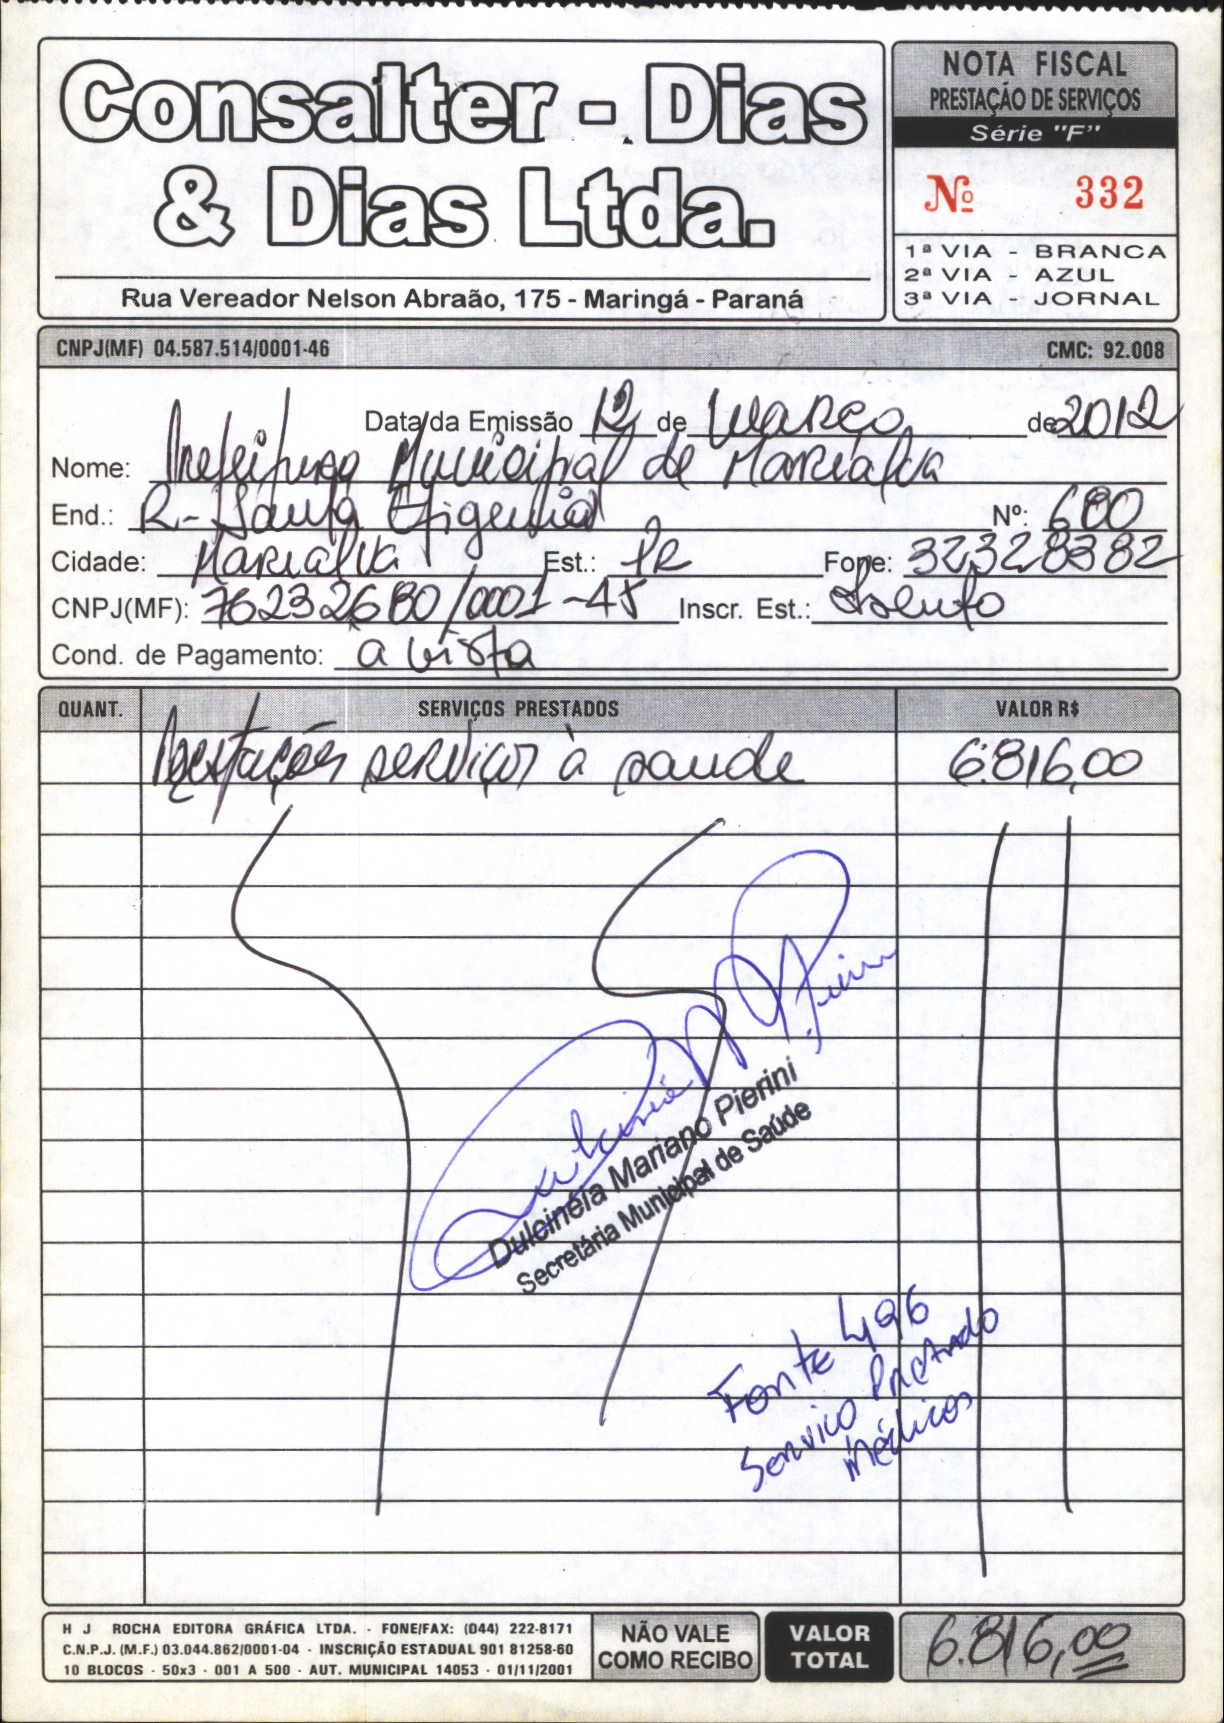 Consalter - Dias
& Dias Ltda.
Rua Vereador Nelson Abraão, 175 - Maringá - Paraná
NOTA FISCAL
PRESTAÇÃO DE SERVIÇOS
Série "F"
Nº 332
1ª VIA - BRANCA
2ª VIA - AZUL
3ª VIA - JORNAL
CNPJ(MF) 04.587.514/0001-46 CMC: 92.008
Data da Emissão 12 de março de 2012
Nome: Prefeitura Municipal de Marialva
End.: R- Santa Efigenia Nº: 680
Cidade: Marialva Est.: PR Fone: 32328382
CNPJ(MF): 76232680/0001-45 Inscr. Est.: Isento
Cond. de Pagamento: a vista
QUANT. SERVIÇOS PRESTADOS VALOR R$
Prestações serviços à saude 6.816,00
Dulcinéia Mariano Pierini
Secretária Municipal de Saúde
Fonte 496
Serviço Prestado
Médicos
H J ROCHA EDITORA GRÁFICA LTDA. - FONE/FAX: (044) 222-8171
C.N.P.J. (M.F.) 03.044.862/0001-04 - INSCRIÇÃO ESTADUAL 901 81258-60
10 BLOCOS - 50x3 - 001 A 500 - AUT. MUNICIPAL 14053 - 01/11/2001
NÃO VALE
COMO RECIBO
VALOR
TOTAL
6.816,00